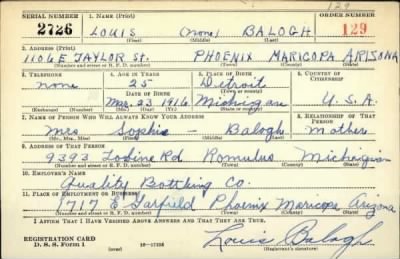 129
SERIAL NUMBER 1. NAME (Print) ORDER NUMBER
2726 LOUIS (none) BALOGH 129
(First) (Middle) (Last)
2. ADDRESS (Print)
1106 E TAYLOR St. PHOENIX MARICOPA ARIZONA
(Number and street or R. F. D. number) (Town) (County) (State)
3. TELEPHONE 4. AGE IN YEARS 5. PLACE OF BIRTH 6. COUNTRY OF CITIZENSHIP
none 25 Detroit
DATE OF BIRTH (Town or county)
Mar. 23 1916 Michigan U.S.A.
(Exchange) (Number) (Mo.) (Day) (Yr.) (State or country)
7. NAME OF PERSON WHO WILL ALWAYS KNOW YOUR ADDRESS 8. RELATIONSHIP OF THAT PERSON
Mrs Sophie - Balogh mother
(Mr., Mrs., Miss) (First) (Middle) (Last)
9. ADDRESS OF THAT PERSON
9393 Rd Romulus Michigan
(Number and street or R. F. D. number) (Town) (County) (State)
10. EMPLOYER'S NAME
Quality Bottling Co.
11. PLACE OF EMPLOYMENT OR BUSINESS
1717 E Garfield Phoenix Maricopa Arizona
(Number and street or R. F. D. number) (Town) (County) (State)
I AFFIRM THAT I HAVE VERIFIED ABOVE ANSWERS AND THAT THEY ARE TRUE.
REGISTRATION CARD
D. S. S. Form 1 (over) 16-17105 Louis Balogh
(Registrant's signature)